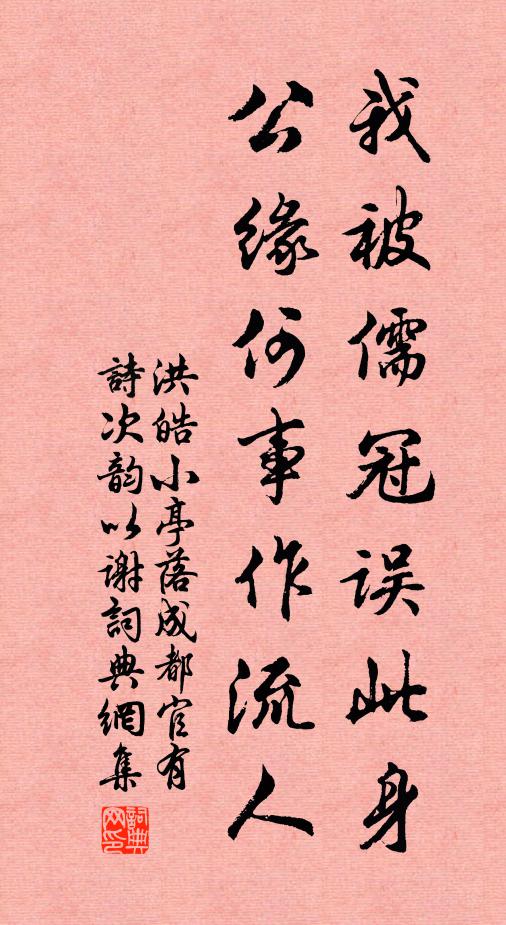 我被儒冠误此身
公缘何事作流人
洪皓小亭落成都官有
詩次韵以谢詞典網集
詞典网印